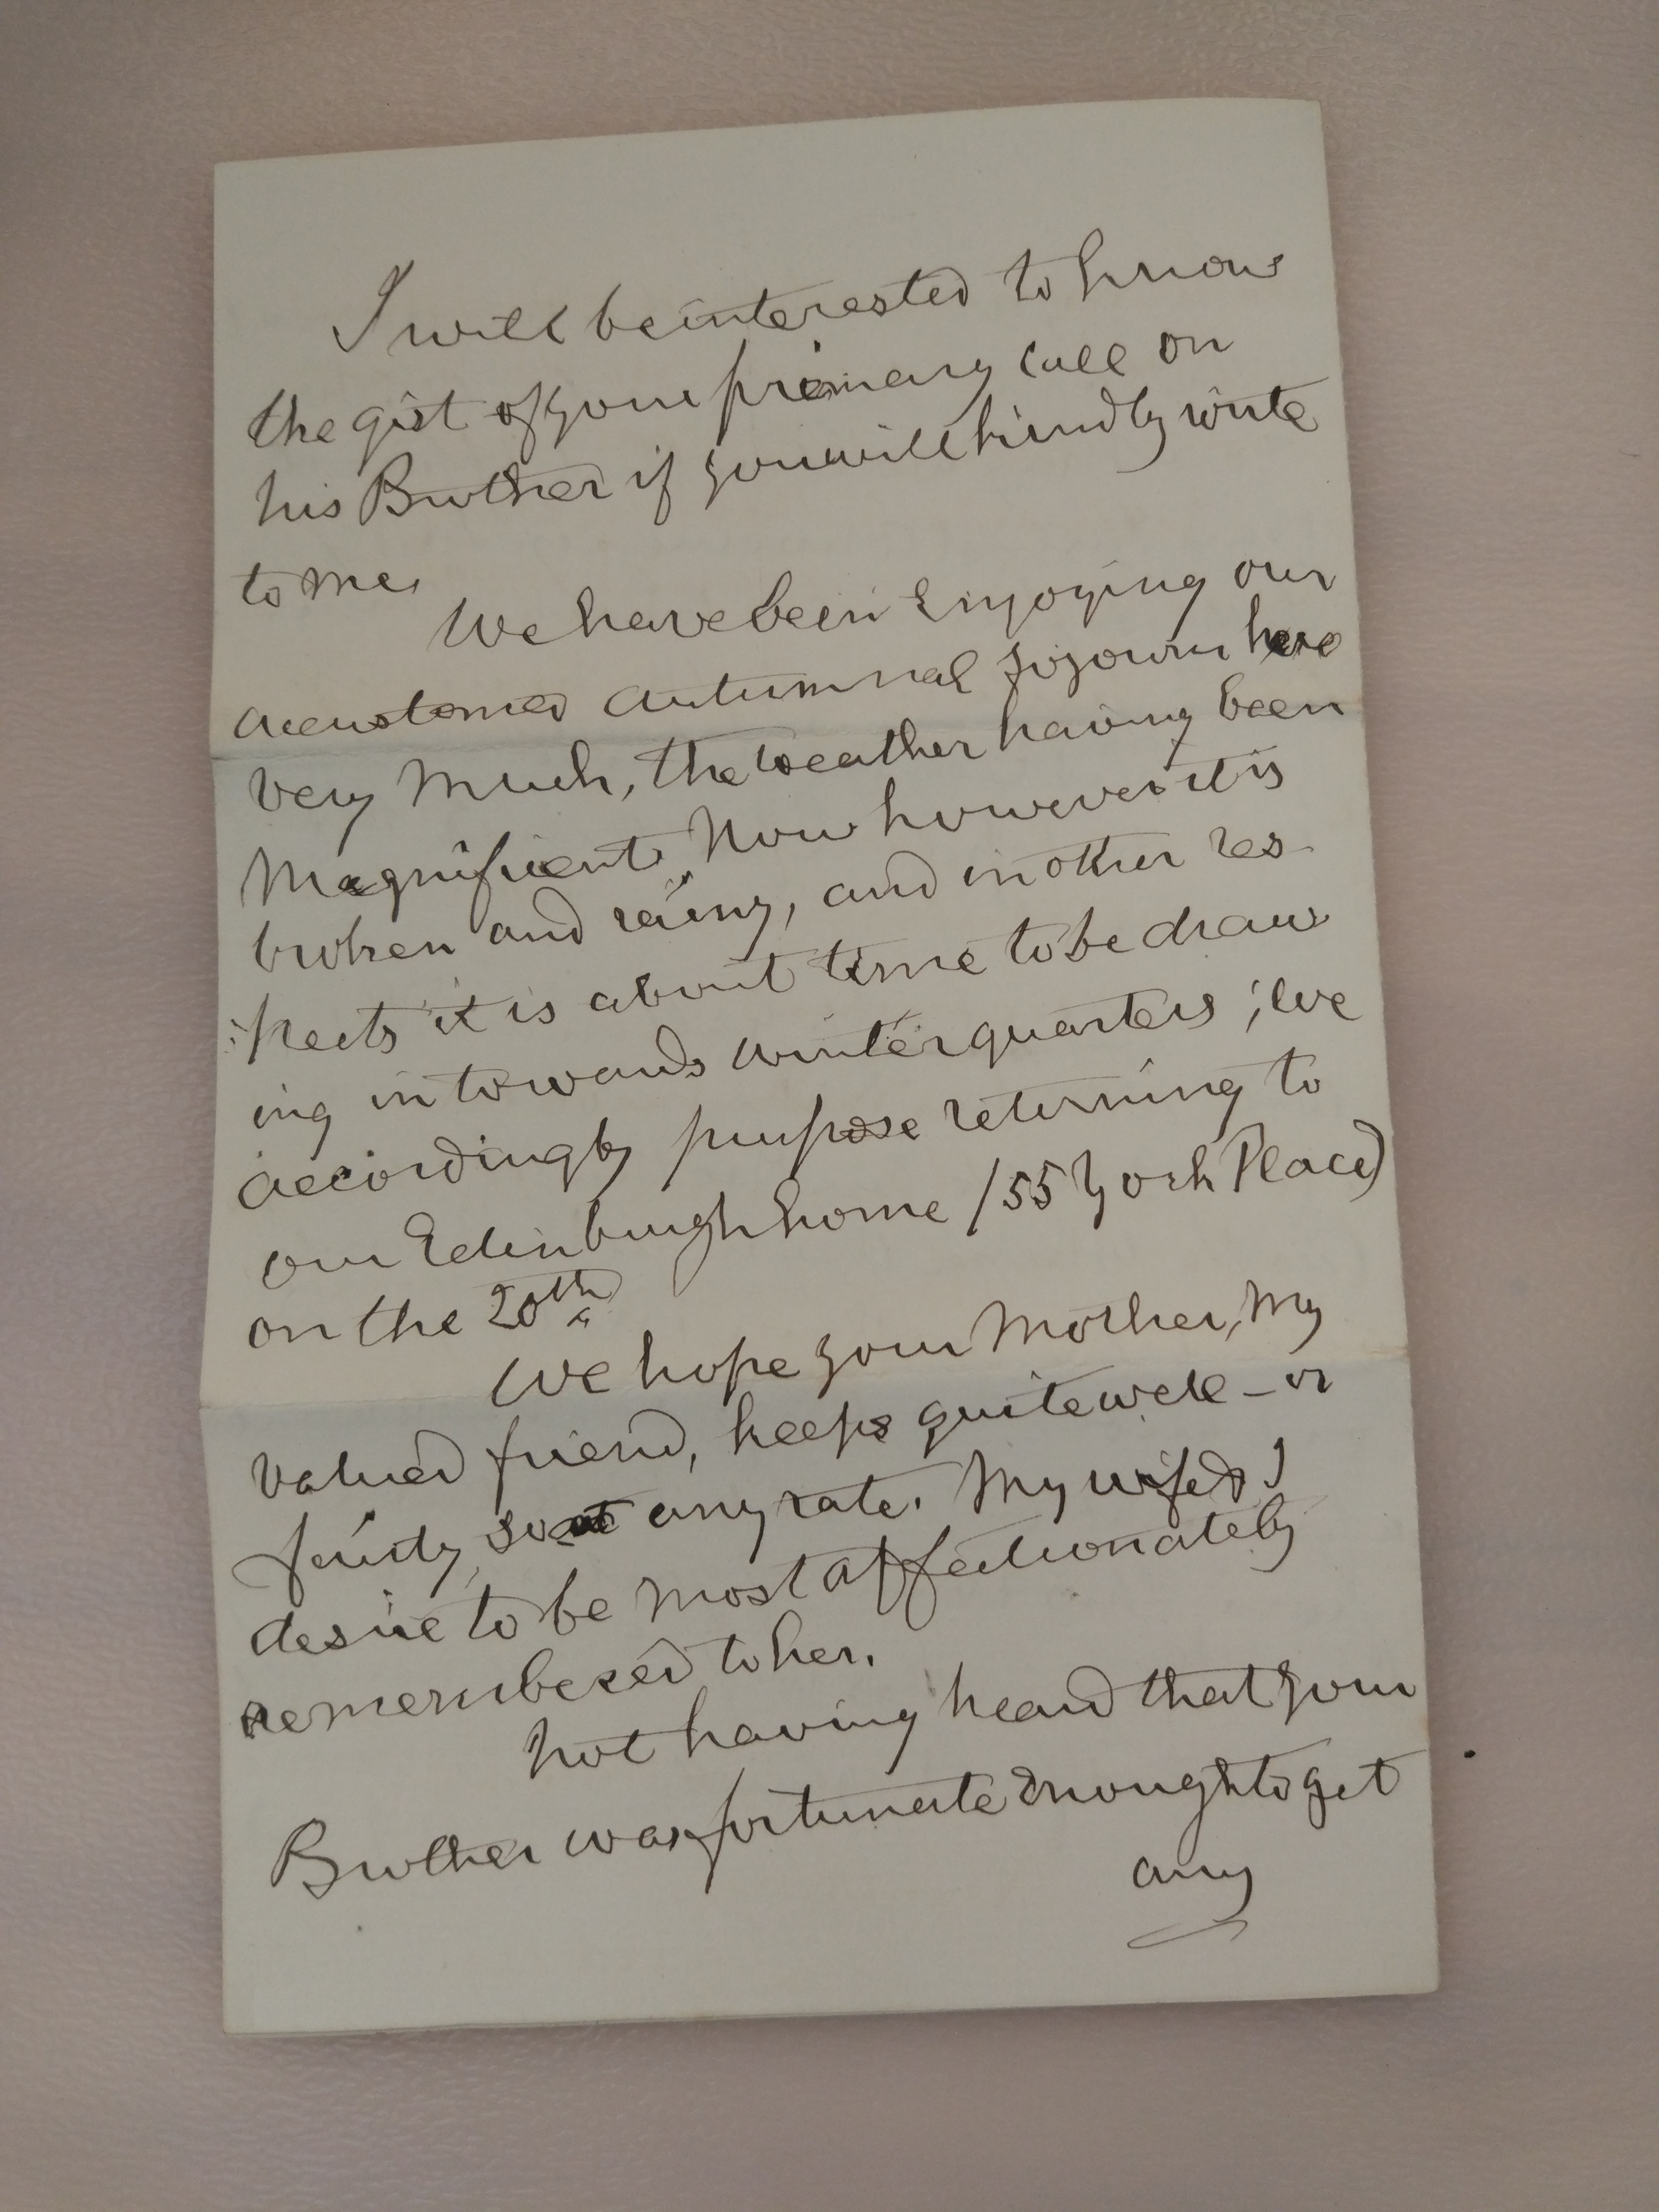 I will be interested to know
the gist of your primary call on
his Brother if you will kindly write
to me.
We have been enjoying our
accustomed autumnal sojourn here
very much, the weather having been
magnificent. Now however it is
broken and rainy, and in other res-
:pects it is about time to be draw
ing in towards winter quarters; we
accordingly purpose returning to
our Edinburgh home (55 York Place)
on the 20th
We hope your Mother, my
valued friend, keeps quite well - or
fairly so at any rate. My wife & I
desire to be most affectionately
remembered to her.
Not having heard that your
Brother was fortunate enough to get
any